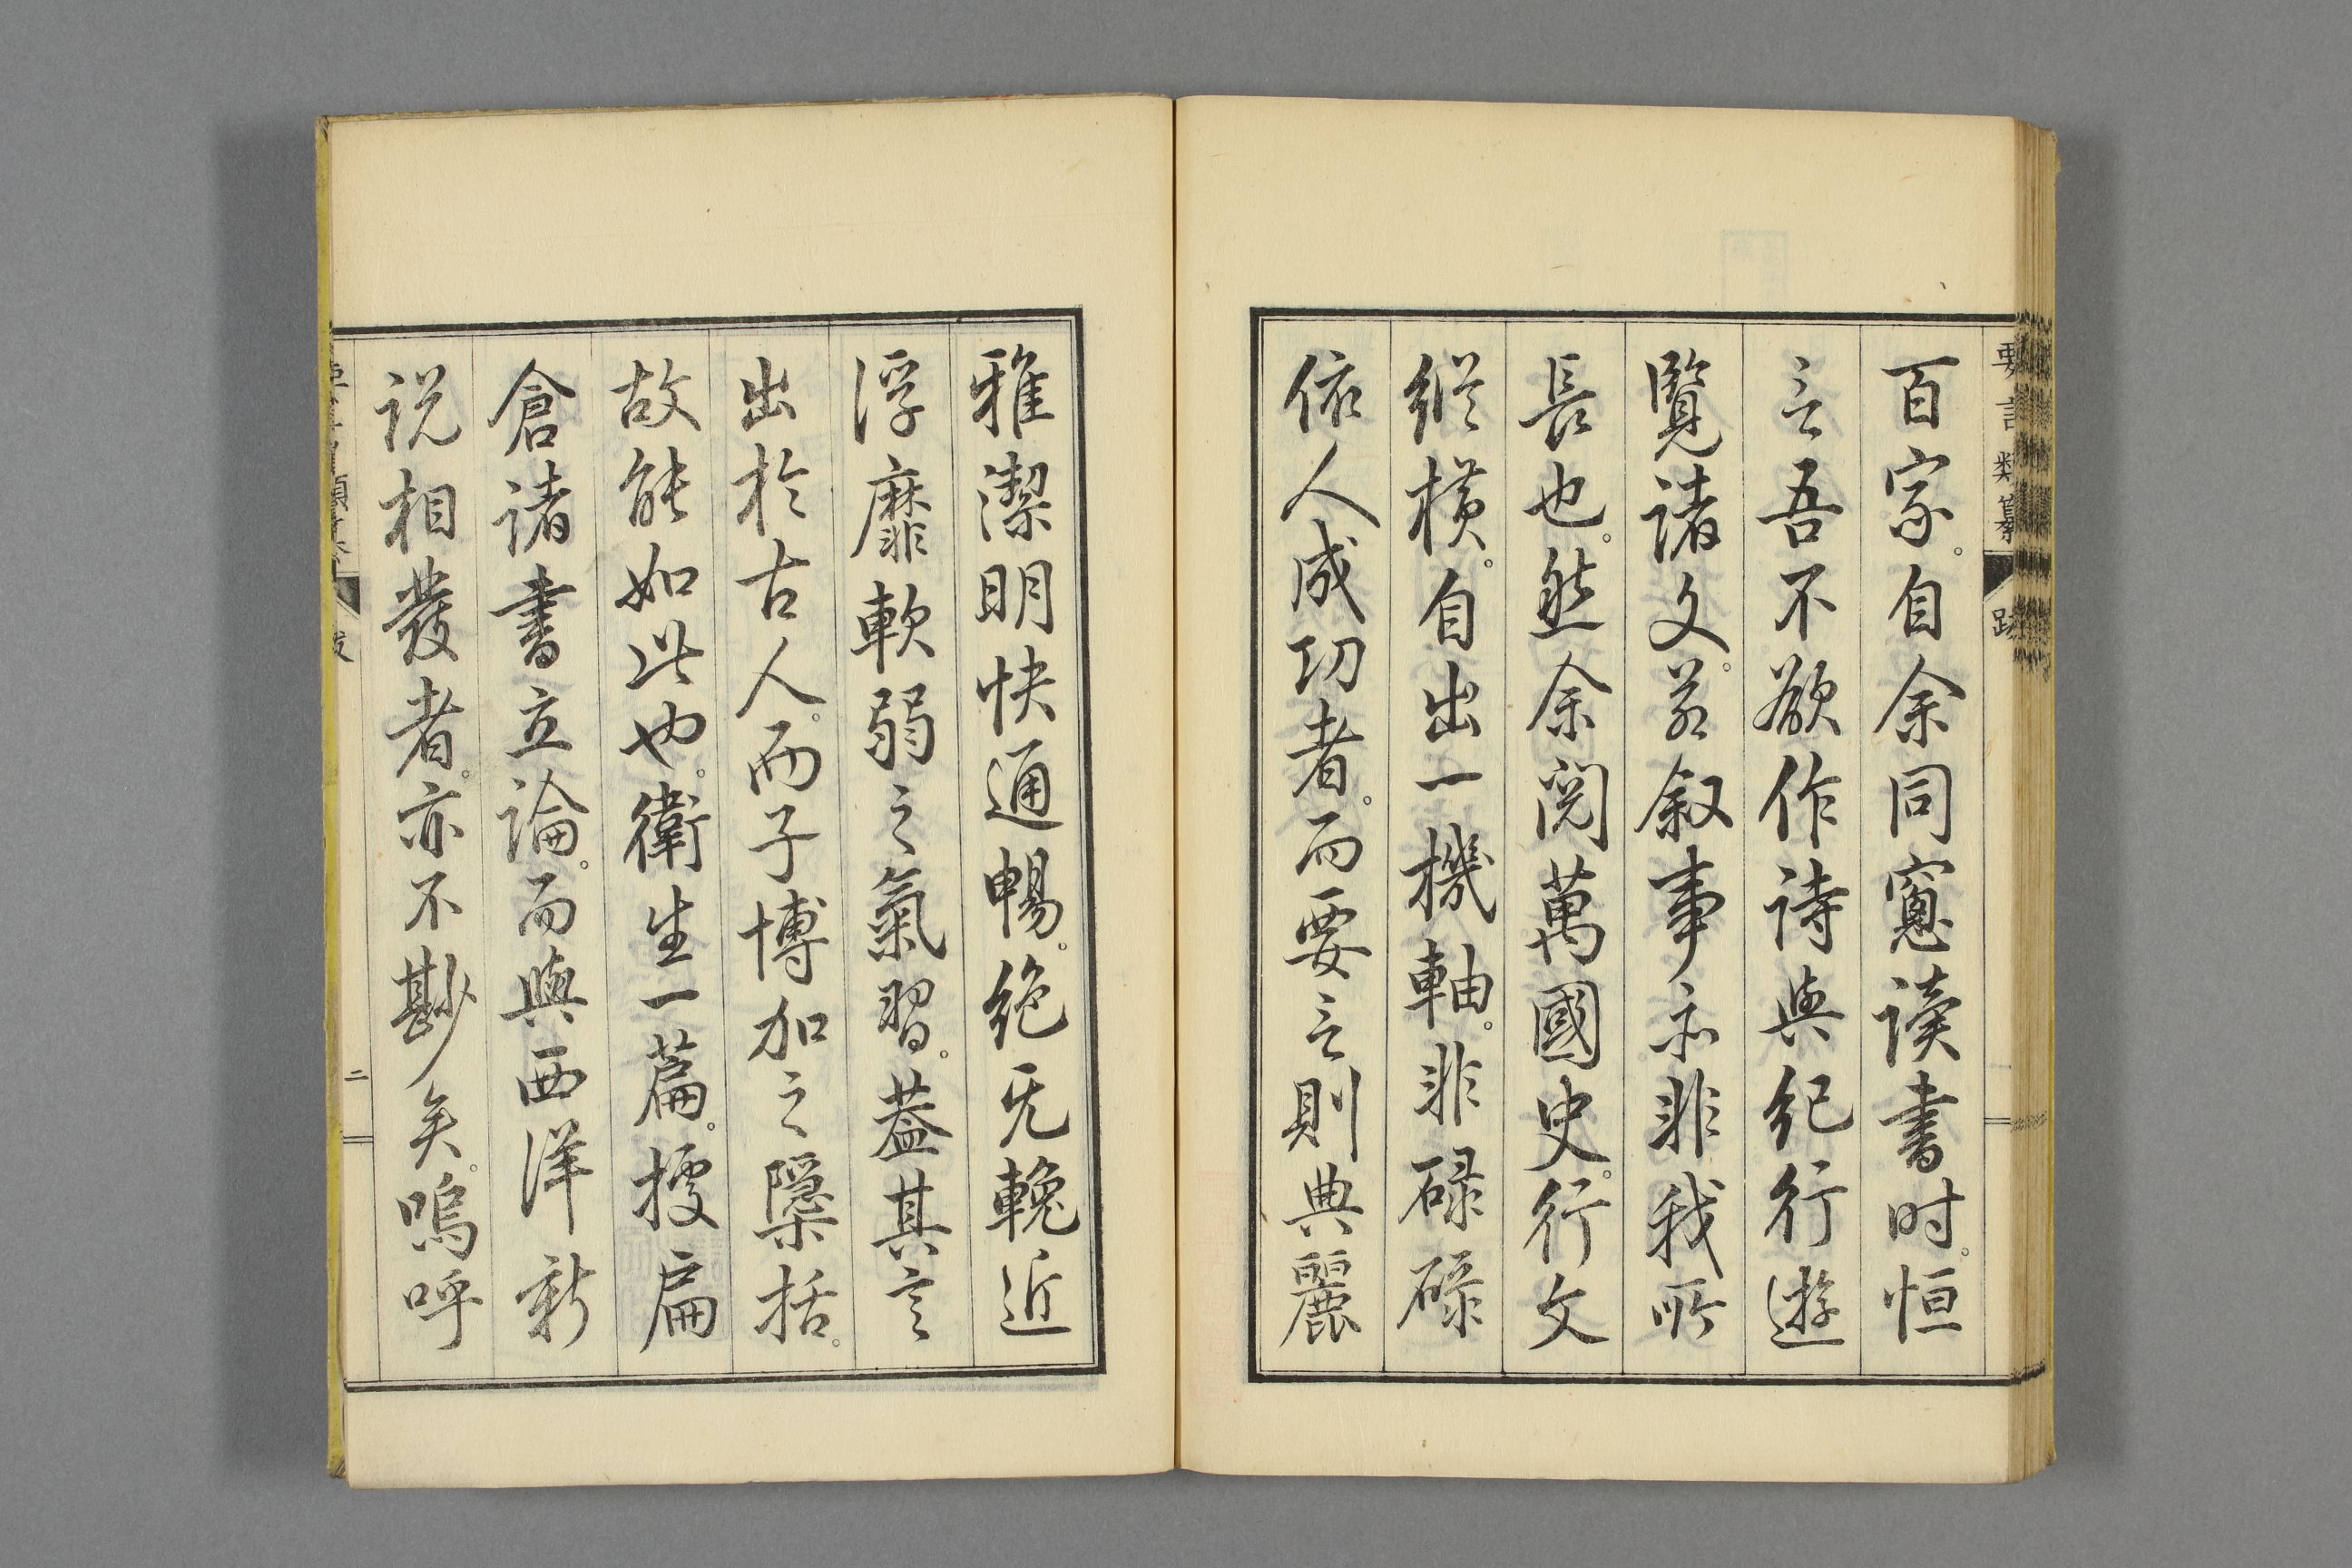 要言類纂 跋
百家。自余同窻读書时。恒
言吾不欲作诗與纪行遊
覽诸文。若叙事亦非我所
長也。然余閲萬國史。行文
縱横。自出一機軸。非碌碌
依人成功者。而要言則典麗
雅潔明快通暢。绝无輓近
浮靡軟弱之氣習。蓋其言
出於古人。而子博加之隱括。
故能如此也。衛生一篇。據扁
倉诸書立論。而與西洋新
说相發者。亦不尠矣。嗚呼
二